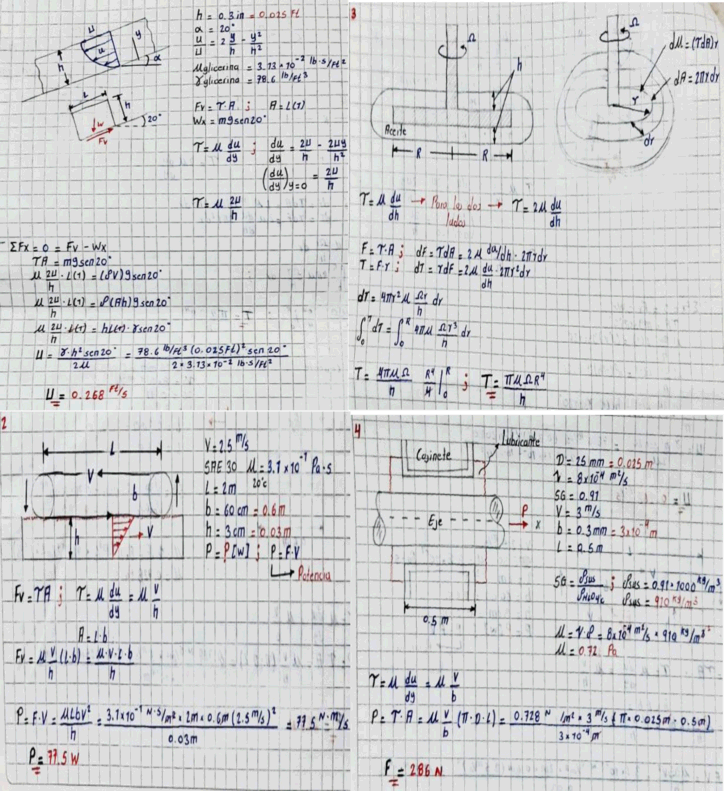 h = 0.3 in = 0.025 ft
α = 20°
u/U = 2 y/h - y²/h²
μglicerina = 3.13×10⁻² lb·s/ft²
γglicerina = 78.6 lb/ft³
Fv = τ·A ; A = L(1)
Wx = mgsen20°
τ = μ du/dy ; du/dy = 2U/h - 2Uy/h²
(du/dy)y=0 = 2U/h
τ = μ 2U/h
U
u
y
h
α
L
h
W
Fv
20°
ΣFx = 0 = Fv - Wx
τA = mgsen20°
μ 2U/h · L(1) = (ρV)gsen20°
μ 2U/h · L(1) = ρ(Ah)gsen20°
μ 2U/h · L(1) = hL(1)·γsen20°
U = γ·h²sen20°/2μ = 78.6 lb/ft³ (0.025Ft)² sen20°/2*3.13×10⁻² lb·s/ft²
U = 0.268 Ft/s
3
Ω
h
Aceite
R
R
Ω
dM = (τdA)r
dA = 2πrdr
r
dr
τ = μ du/dh → Para los dos lados → τ = 2μ du/dh
F = τ·A ; dF = τdA = 2μ du/dh · 2πrdr
T = F·r ; dT = rdF = 2μ du/dh 2πr²dr
dT = 4πr²μ Ωr/h dr
∫₀ᵀ dT = ∫₀ᴿ 4πμ Ωr³/h dr
T = 4πμΩ/h R⁴/4 |₀ᴿ ; T = πμΩR⁴/h
2
L
V
b
h
V
V = 2.5 m/s
SAE 30 μ = 3.1×10⁻¹ Pa·s
20°c
L = 2m
b = 60 cm = 0.6m
h = 3cm = 0.03m
P = P[W] ; P = F·V
Potencia
Fv = τA ; τ = μ du/dy = μ V/h
A = L·b
Fv = μ V/h (L·b) = μ·V·L·b/h
P = F·V = μLbV²/h = 3.1×10⁻¹ N·s/m² * 2m * 0.6m (2.5m/s)²/0.03m = 77.5 N·m/s
P = 77.5 W
4
Cojinete
Lubricante
Eje
P
x
0.5 m
D = 25 mm = 0.025 m
ν = 8×10⁻⁴ m²/s
SG = 0.91
V = 3 m/s
b = 0.3mm = 3×10⁻⁴ m
L = 0.5m
SG = ρsus/ρH₂O4°c ; ρsus = 0.91 * 1000 kg/m³
ρsus = 910 kg/m³
μ = ν·ρ = 8×10⁻⁴ m²/s * 910 kg/m³
μ = 0.72 Pa
τ = μ du/dy = μ V/b
P = τ·A = μ V/b (π·D·L) = 0.728 N/m² * 3 m/s (π * 0.025m · 0.5m)/3×10⁻⁴ m
F = 286 N